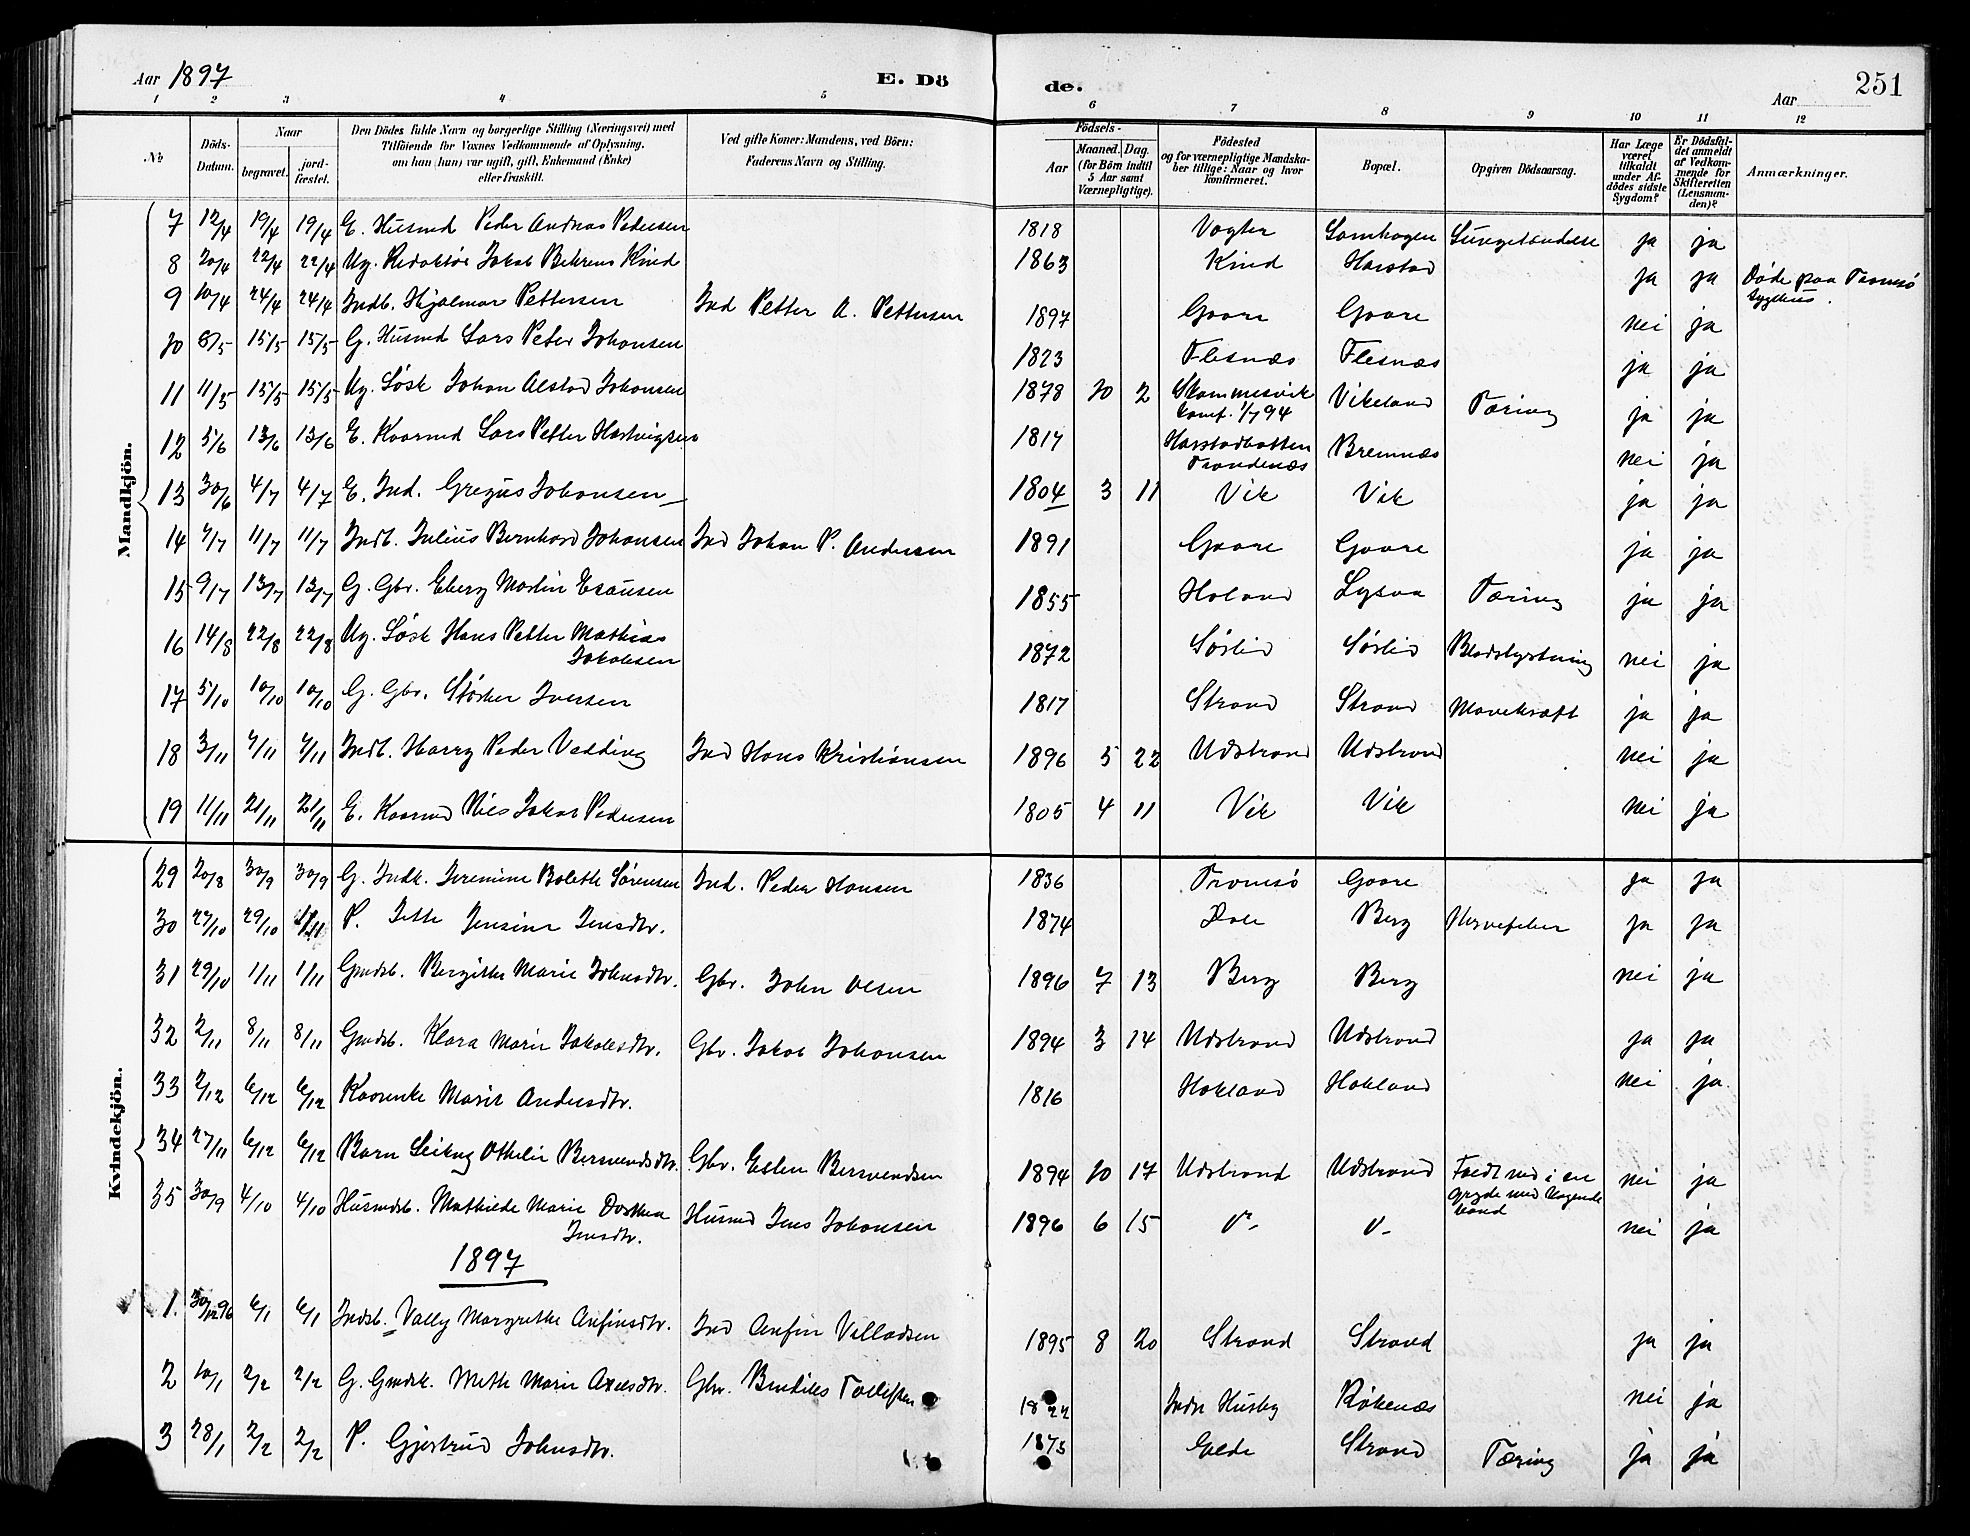 Aar 1897 E. Dö de. Aar 251
1 2 3 4 5 6 7 8 9 10 11 12
No Döds-Datum. Naar begravet. jord-fæstet. Den Dödes fulde Navn og borgerlige Stilling (Næringsvei) med Tilföiende for Voxnes Vedkommende af Oplysning, om han (hun) var ugift, gift, Enkemand (Enke) eller fraskilt. Ved gifte Koner: Mandens, ved Börn: Faderens Navn og Stilling. Födsels- Aar Maaned. Dag. (for Börn indtil 5 Aar samt Værnepligtige). Födested og for værnepligtige Mandskaber tillige: Naar og hvor konfirmeret. Bopæl. Opgiven Dödsaarsag. Har Læge været tilkaldt under Afdödes sidste Sygdom? Er Dödsfaldet anmeldt af Vedkommende for Skifteretten (Lensmanden)? Anmærkninger.
Mandkjön.
7 12/4 19/4 19/4 E. Husmd Peder Andreas Pedersen 1818 Vogter Samhagen Lungebetændelse ja ja
8 20/4 22/4 22/4 Ug. Redaktør Jakob Behrens Kind 1863 Kind Harstad ja ja Døde paa Tromsø Sygehus.
9 10/4 24/4 24/4 Indb. Hjalmar Pettersen Ind Petter A. Pettersen 1897 Gaare Gaare nei ja
10 8/5 15/5 15/5 G. Husmd Lars Peter Johansen 1823 Flesnæs Flesnæs ja ja
11 11/5 15/5 15/5 Ug. Løsk Johan Alstad Johansen 1878 10 2 Skammesvik konf. 1/7 94 Vikeland Tæring ja ja
12 5/6 13/6 13/6 E. Kaarmd Lars Petter Hartvigsen 1817 Harstadbotten Trondenæs Bremnæs nei ja
13 30/6 4/7 4/7 E. Ind. Gregus Johansen 1804 3 11 Vik Vik ja ja
14 7/7 11/7 11/7 Indb. Julius Bernhard Johansen Ind Johan P. Andersen 1891 Gaare Gaare ja ja
15 9/7 13/7 13/7 G. Gbr. Eberg Martin Esausen 1855 Holand Lysaa Tæring ja ja
16 14/8 22/8 22/8 Ug. Løsk Hans Petter Mathias Jakobsen 1872 Sørlid Sørlid Blodstyrtning nei ja
17 5/10 10/10 10/10 G. Gbr. Størker Iversen 1817 Strand Strand Mavekræft ja ja
18 3/11 7/11 7/11 Indb. Harry Peder Vedding Ind Hans Kristiansen 1896 5 22 Udstrand Udstrand nei ja
19 11/11 21/11 21/11 E. Kaarmd Nils Jakob Pedersen 1805 4 11 Vik Vik nei ja
Kvindekjön.
29 20/8 30/9 30/9 G. Indk. Jeremine Bolette Sørensen Ind. Peder Hansen 1836 Tromsø Gaare ja ja
30 27/10 29/10 1/11 P. Jette Jensine Jensdtr. 1874 Dale Berg Nervefeber ja ja
31 29/10 1/11 1/11 Gmdsb. Bergitte Marie Johnsdtr. Gbr. John Olsen 1896 7 13 Berg Berg nei ja
32 2/11 8/11 8/11 Gmdsb. Klara Marie Jakobsdtr. Gbr. Jakob Johansen 1894 3 14 Udstrand Udstrand ja ja
33 2/12 6/12 6/12 Kaarenke Marit Andersdtr. 1816 Hokland Hokland nei ja
34 27/11 6/12 6/12 Barn Othelie Bersvendsdtr. Gbr. Esten Bersvendsen 1894 10 17 Udstrand Udstrand Faldt ned i en gryde med kogende vand nei ja
35 30/9 4/10 4/10 Husmdsb. Mathilde Marie Dorthea Jensdtr. Husmd Jens Johansen 1896 6 15 nei ja
1897
1. 30/12 96 6/1 6/1 Indsb. Vally Margrethe Anfinsdtr. Ind Anfin Villadsen 1895 8 20 Strand Strand ja ja
2 10/1 2/2 2/2 G. Gmdsk. Mette Marie Axelsdtr. Gbr. Tollefsen 1822 Indre Husby Røkenæs nei ja
3 28/1 2/2 2/2 P. Gjertrud Johnsdtr. 1873 Elde Strand Tæring ja ja